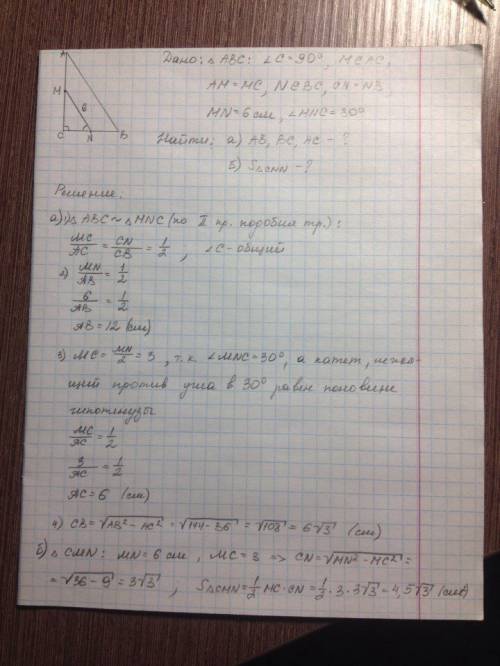 A
M
6
C N B
Дано: △ ABC: ∠C=90°, M⊂AC,
AM=MC, N⊂BC, CN=NB,
MN=6 см, ∠MNC=30°
Найти: а) AB, BC, AC - ?
б) S△CMN - ?
Решение:
а) 1) △ ABC ~ △ MNC (по II пр. подобия тр.):
MC/AC = CN/CB = 1/2 , ∠C - общий
2) MN/AB = 1/2
6/AB = 1/2
AB = 12 (см)
3) MC = MN/2 = 3 , т.к. ∠MNC=30°, а катет, лежа-
щий против угла в 30° равен половине
гипотенузы
MC/AC = 1/2
3/AC = 1/2
AC = 6 (см)
4) CB = √AB²-AC² = √144-36 = √108 = 6√3 (см)
б) △ CMN: MN=6 см , MC=3 => CN=√MN²-MC² =
= √36-9 = 3√3 , S△CMN = 1/2 MC·CN = 1/2·3·3√3 = 4,5√3 (см²)